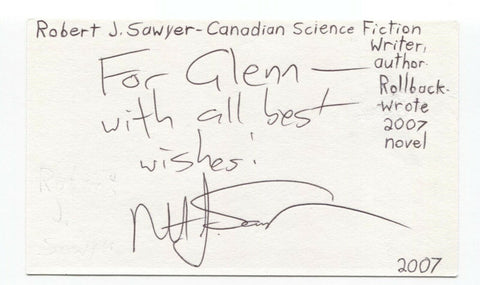 Robert J. Sawyer - Canadian Science Fiction
Writer,
author.
Rollback-
wrote
2007
novel
For Glenn —
with all best
wishes!
Robert
J.
Sawyer
2007